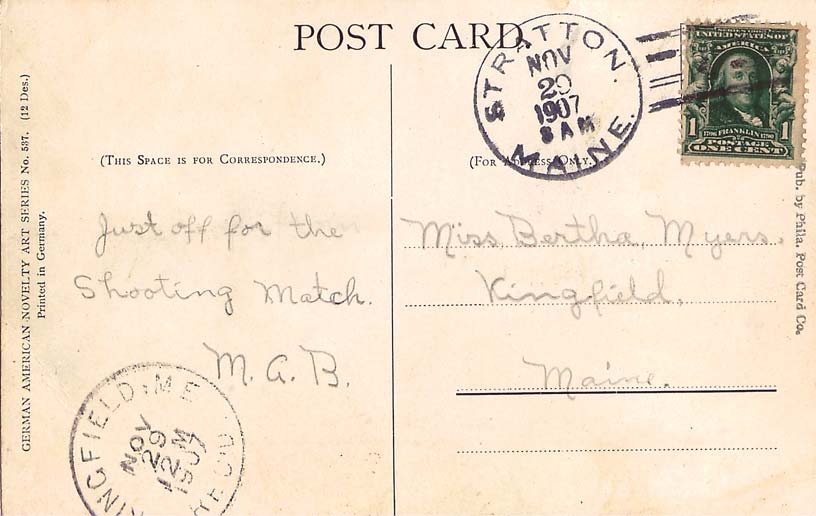 POST CARD
STRATTON.
NOV
29
1907
8 AM
MAINE.
SERIES 1902
UNITED STATES OF
AMERICA
1
1706 FRANKLIN 1790
1
POSTAGE
ONE CENT
(THIS SPACE IS FOR CORRESPONDENCE.)
(FOR ADDRESS ONLY.)
Just off for the
Shooting Match.
M. A. B.
Miss Bertha Myers.
Kingfield,
Maine.
KINGFIELD, ME
NOV
29
12 M
1907
REC'D
GERMAN AMERICAN NOVELTY ART SERIES No. 537. (12 Des.)
Printed in Germany.
Pub. by Phila. Post Card Co.